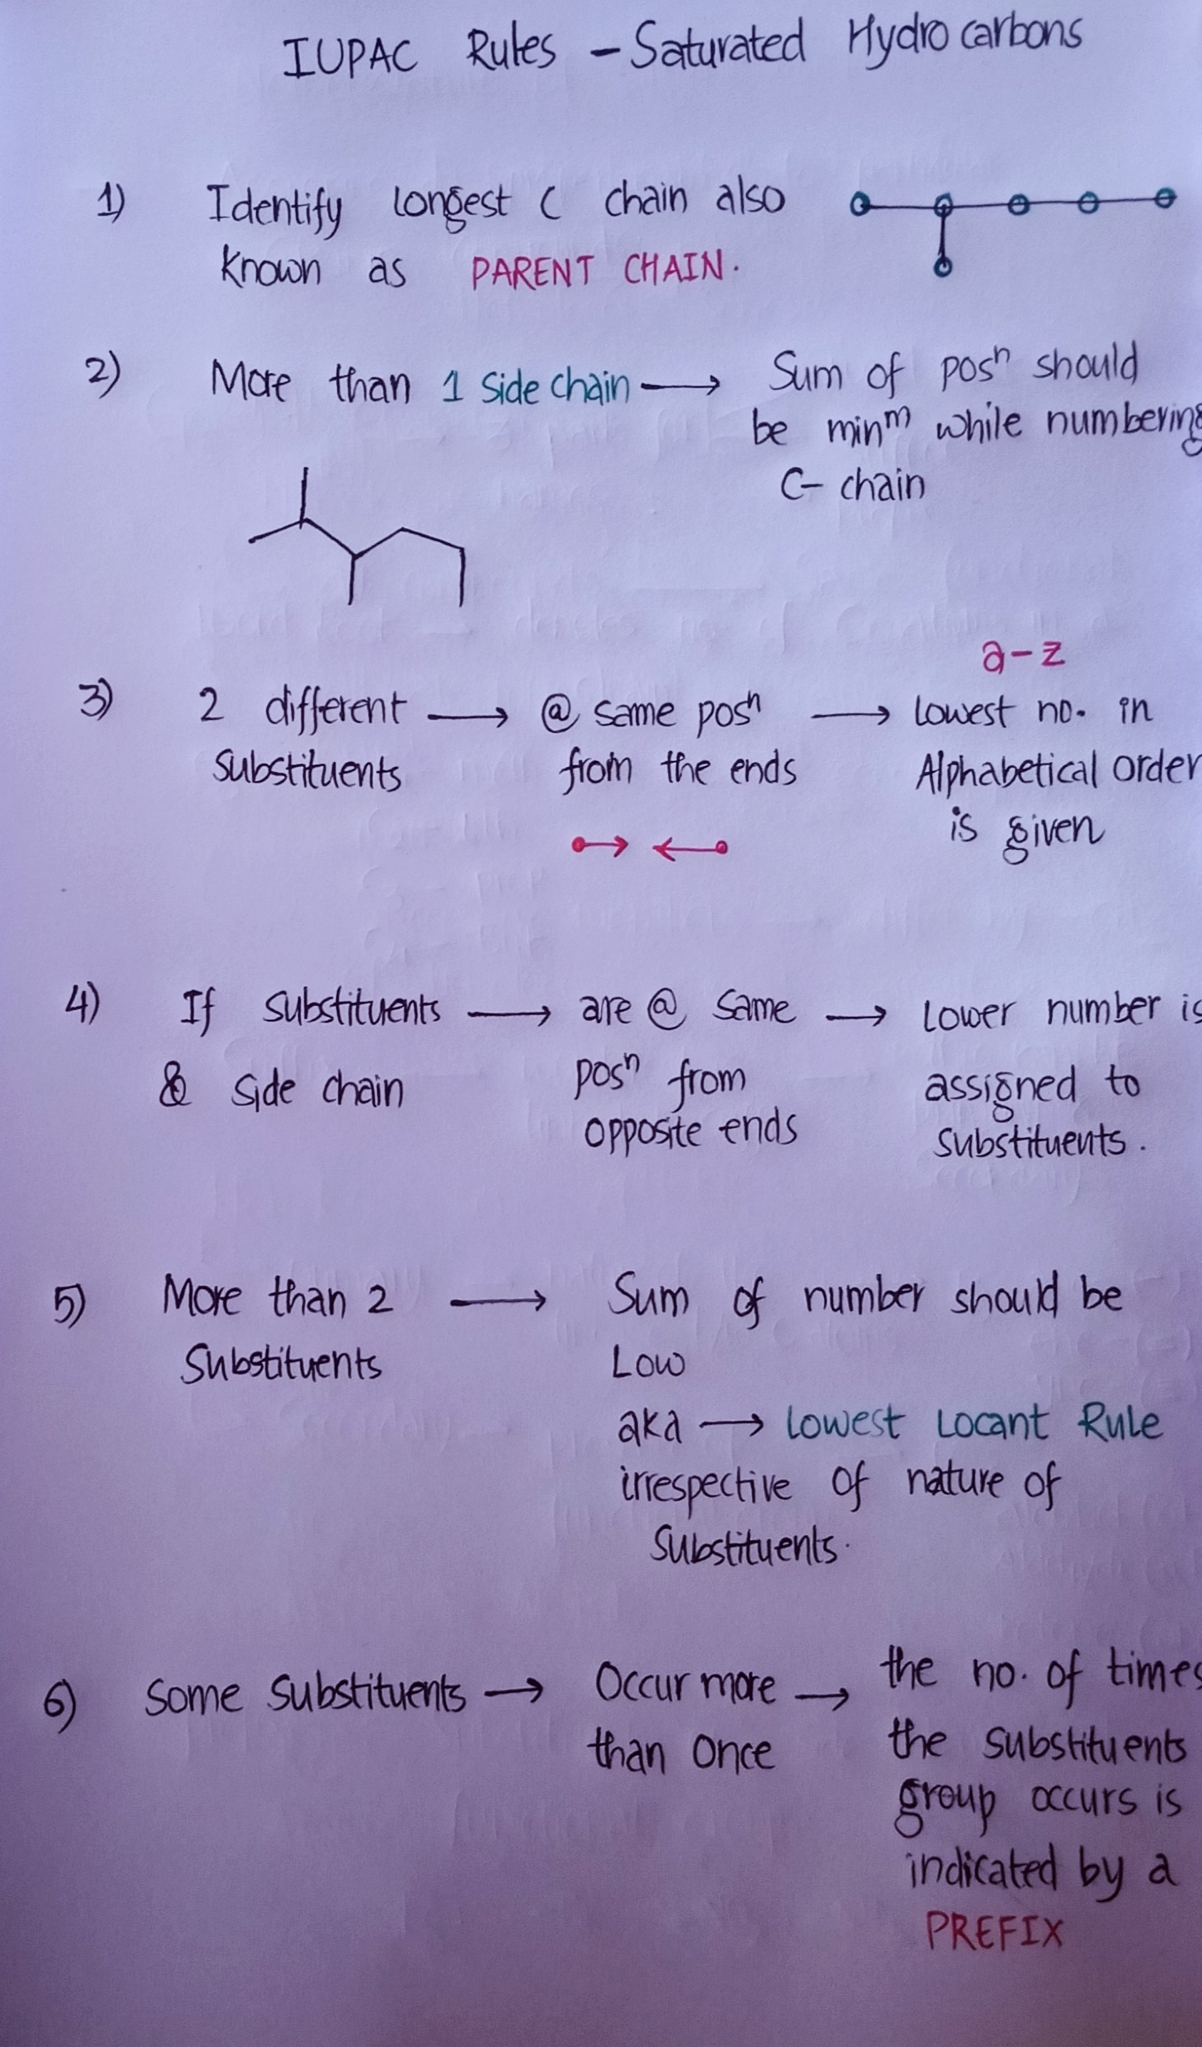 IUPAC Rules - Saturated Hydro carbons
1) Identify longest C chain also
known as PARENT CHAIN.
2) More than 1 side chain → Sum of posⁿ should
be minᵐ while numbering
C- chain
a-z
3) 2 different → @ same posⁿ → lowest no. in
substituents from the ends Alphabetical order
is given
4) If substituents → are @ same → Lower number is
& side chain posⁿ from assigned to
opposite ends substituents.
5) More than 2 → Sum of number should be
Substituents Low
aka → Lowest Locant Rule
irrespective of nature of
Substituents.
6) Some substituents → Occur more → the no. of times
than once the substituents
group occurs is
indicated by a
PREFIX